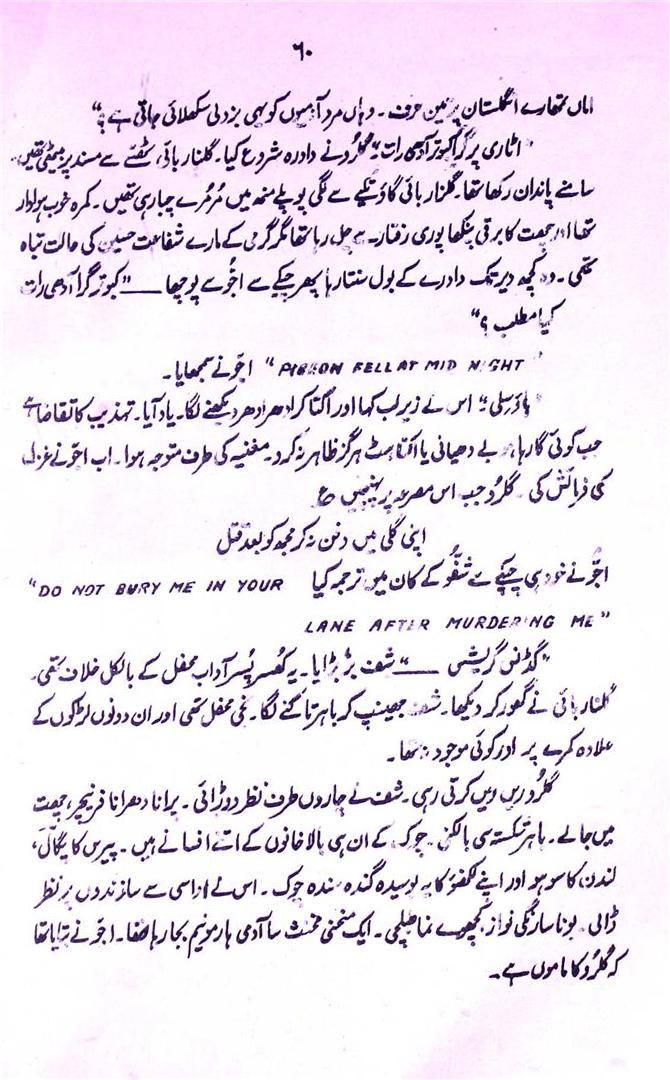 ۶۰
اماں تمھارے انگلستان پر تین حرف۔ وہاں مرد آدمیوں کو یہی بزدلی سکھلائی جاتی ہے؟"
"اٹاری پر گرا کبوتر آدھی رات" گلرُو نے دادرہ شروع کیا۔ گلنار بائی، ٹھسّے سے مسند پر بیٹھی تھیں۔
سامنے پاندان رکھا تھا۔ گلزار بائی گاؤ تکیے سے لگی پوپلے منھ میں مُرمُرے چبا رہی تھیں۔ کمرہ خوب ہوادار
تھا اور چھت کا برقی پنکھا پوری رفتار سے چل رہا تھا مگر گرمی کے مارے شفاعت حسین کی حالت تباہ
تھی۔ وہ کچھ دیر تک دادرے کے بول سنتا رہا پھر چپکے سے اجّو سے پوچھا ــــ "کبوتر گرا آدھی رات
کیا مطلب؟"
"PIGEON FELL AT MID NIGHT" اجّو نے سمجھایا۔
"ہاؤ سلی" اس نے زیر لب کہا اور اُکتا کر ادھر ادھر دیکھنے لگا۔ یاد آیا۔ تہذیب کا تقاضا ہے
جب کوئی گا رہا ہو بے دھیانی یا اکتاہٹ ہرگز ظاہر نہ کرو۔ مغنیہ کی طرف متوجہ ہوا۔ اب اجّو نے غزل
کی فرمائش کی۔ گلرُو جب اس مصرعہ پر پہنچیں ؏
اپنی گلی میں دفن نہ کر مجھ کو بعد قتل
اجّو نے خود ہی چپکے سے شفّو کے کان میں ترجمہ کیا "DO NOT BURY ME IN YOUR
LANE AFTER MURDERING ME"
"گڈنس گریشس ــــ" شف بڑبڑایا۔ یہ کُھسر پُسر آداب محفل کے بالکل خلاف تھی۔
گلنار بائی نے گھور کر دیکھا۔ شف جھینپ کر باہر تاکنے لگا۔ نجی محفل تھی اور ان دونوں لڑکوں کے
علاوہ کمرے پر اور کوئی موجود نہ تھا۔
گلرُو ریں ریں کرتی رہی۔ شف نے چاروں طرف نظر دوڑائی۔ پرانا دھرانا فرنیچر، چھت
میں جالے۔ باہر شکستہ سی بالکنی۔ چوک کے ان ہی بالا خانوں کے اتنے افسانے ہیں۔ پیرس کا پگال،
لندن کا سوہو اور اپنے لکھنؤ کا یہ بوسیدہ گندہ سندہ چوک۔ اس نے اداسی سے سازندوں پر نظر
ڈالی۔ بونا سارنگی نواز، کچھوے نما طبلچی۔ ایک منحنی مخنث سا آدمی ہارمونیم بجا رہا تھا۔ اجّو نے بتایا تھا
کہ گلرُو کا ماموں ہے۔